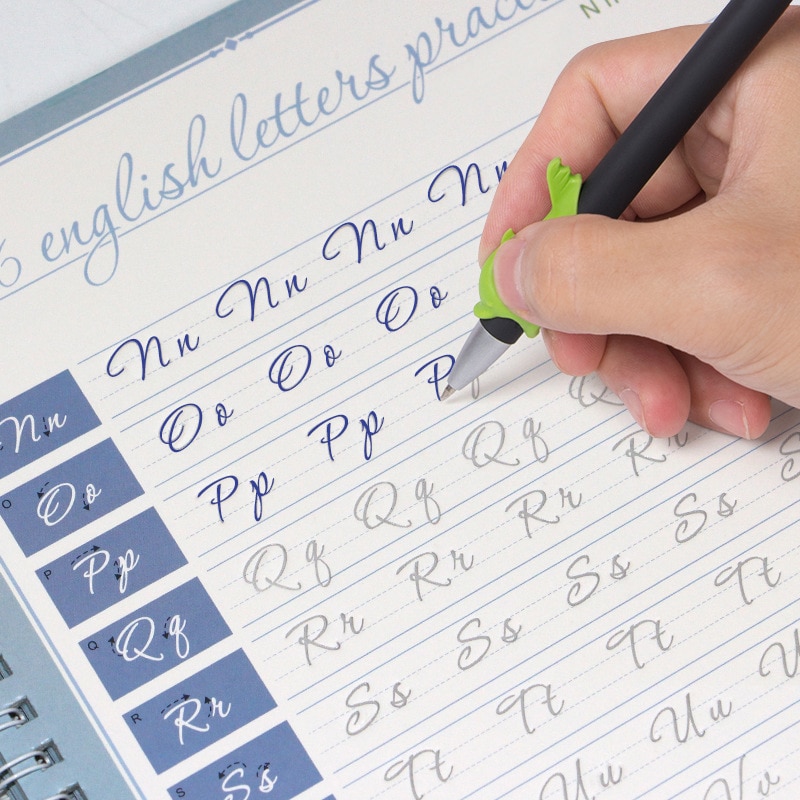 6 english letters
Nn Nn Nn Nn Nn
O Oo Oo Oo Oo
P Pp Pp Pp P
Q Qq Qq Qq Qq
R Rr Rr Rr Rr Rr
S Ss Ss Ss Ss
Tt Tt Tt Tt
Uu Uu